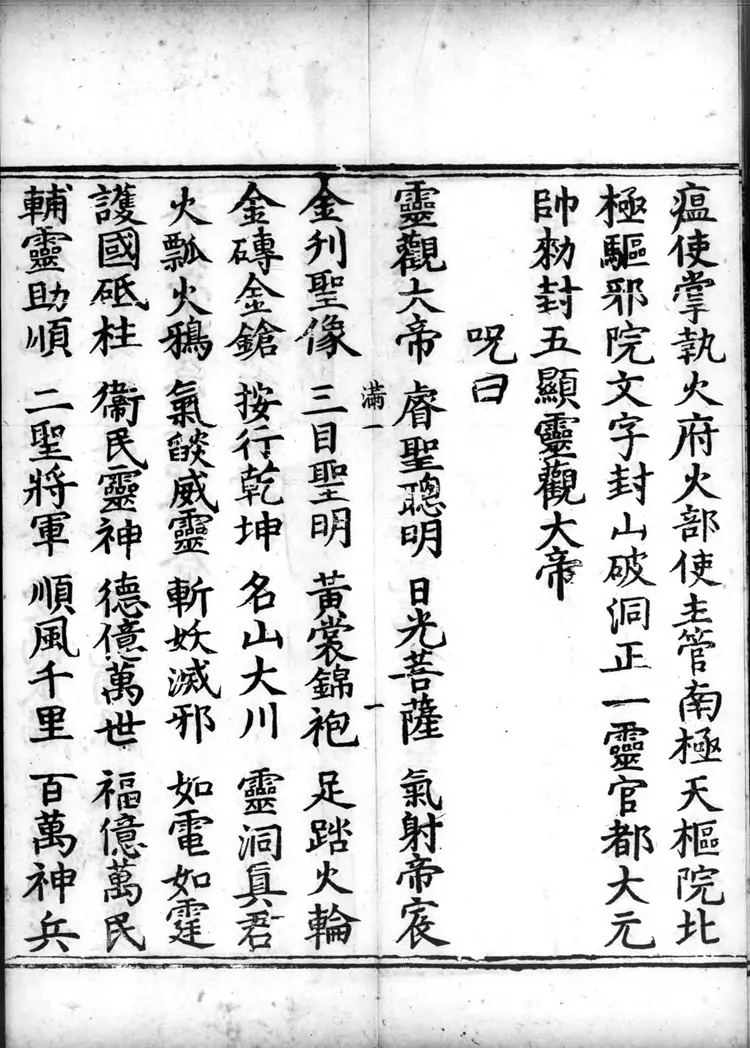 瘟使掌執火府火部使主管南極天樞院北
極驅邪院文字封山破洞正一靈官都大元
帥勑封五顯靈觀大帝
呪曰
靈觀大帝 睿聖聰明 日光菩薩 氣射帝宸
滿一 一
金刋聖像 三目聖明 黃裳錦袍 足踏火輪
金磚金鎗 按行乾坤 名山大川 靈洞眞君
火瓢火鴉 氣燄威靈 斬妖滅邪 如電如霆
護國砥柱 衞民靈神 德億萬世 福億萬民
輔靈助順 二聖將軍 順風千里 百萬神兵